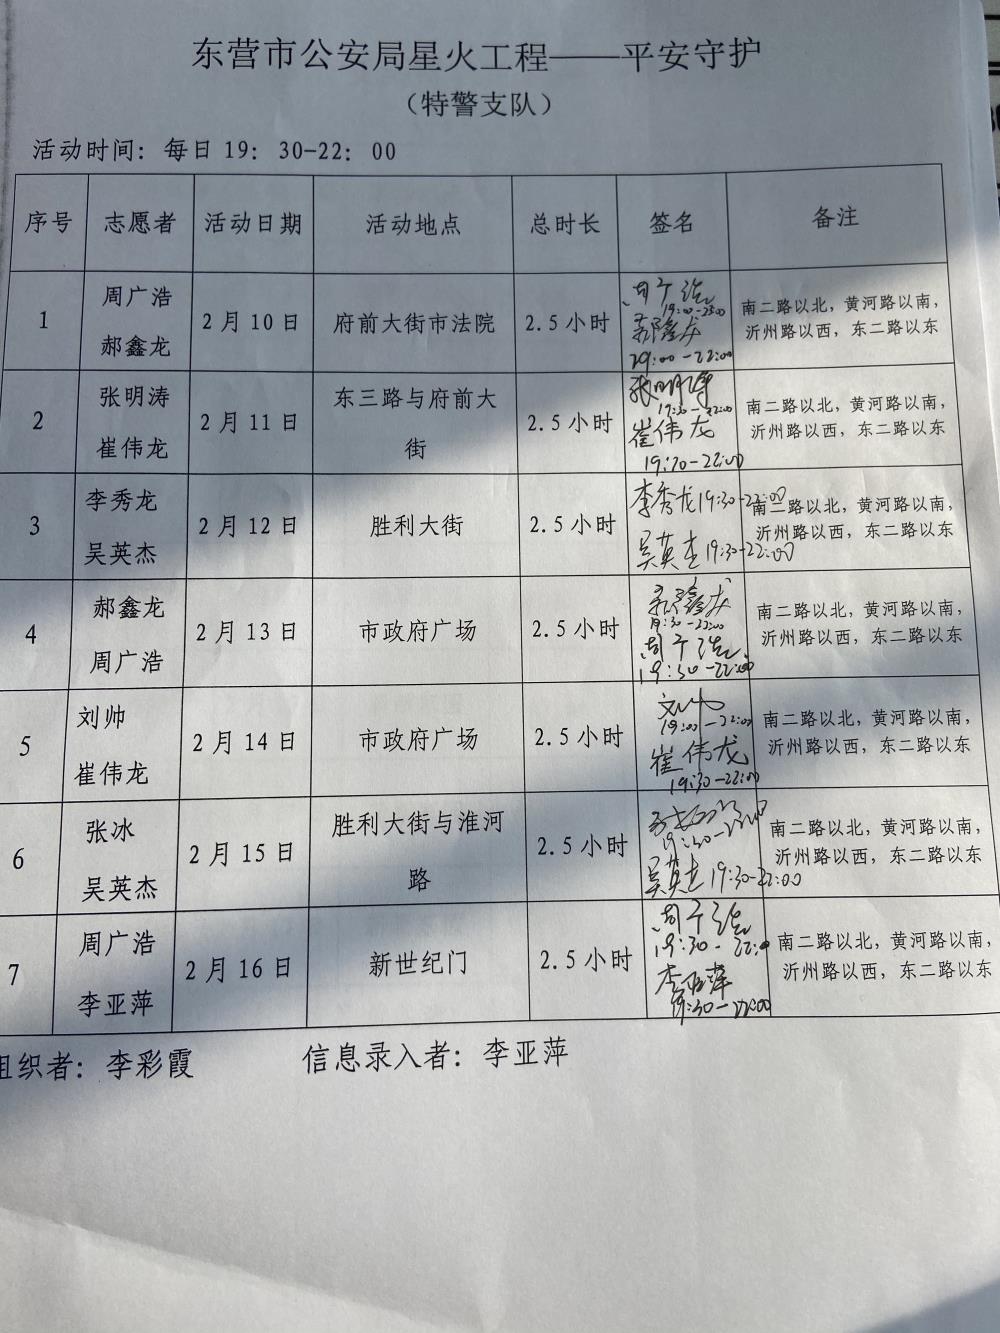 东营市公安局星火工程——平安守护
（特警支队）
活动时间：每日19：30-22：00
序号 志愿者 活动日期 活动地点 总时长 签名 备注
1 周广浩 郝鑫龙 2月10日 府前大街市法院 2.5小时 周广浩 19:00-23:00 郝鑫龙 19:00-22:00 南二路以北，黄河路以南，沂州路以西，东二路以东
2 张明涛 崔伟龙 2月11日 东三路与府前大街 2.5小时 张明涛 19:30-22:00 崔伟龙 19:30-22:00 南二路以北，黄河路以南，沂州路以西，东二路以东
3 李秀龙 吴英杰 2月12日 胜利大街 2.5小时 李秀龙 19:30-22:00 吴英杰 19:30-22:00 南二路以北，黄河路以南，沂州路以西，东二路以东
4 郝鑫龙 周广浩 2月13日 市政府广场 2.5小时 郝鑫龙 19:30-22:00 周广浩 19:30-22:00 南二路以北，黄河路以南，沂州路以西，东二路以东
5 刘帅 崔伟龙 2月14日 市政府广场 2.5小时 19:00-22:00 崔伟龙 19:30-22:00 南二路以北，黄河路以南，沂州路以西，东二路以东
6 张冰 吴英杰 2月15日 胜利大街与淮河路 2.5小时 19:30-22:00 吴英杰 19:30-22:00 南二路以北，黄河路以南，沂州路以西，东二路以东
7 周广浩 李亚萍 2月16日 新世纪门 2.5小时 周广浩 19:30-22:00 李亚萍 19:30-22:00 南二路以北，黄河路以南，沂州路以西，东二路以东
组织者：李彩霞 信息录入者：李亚萍